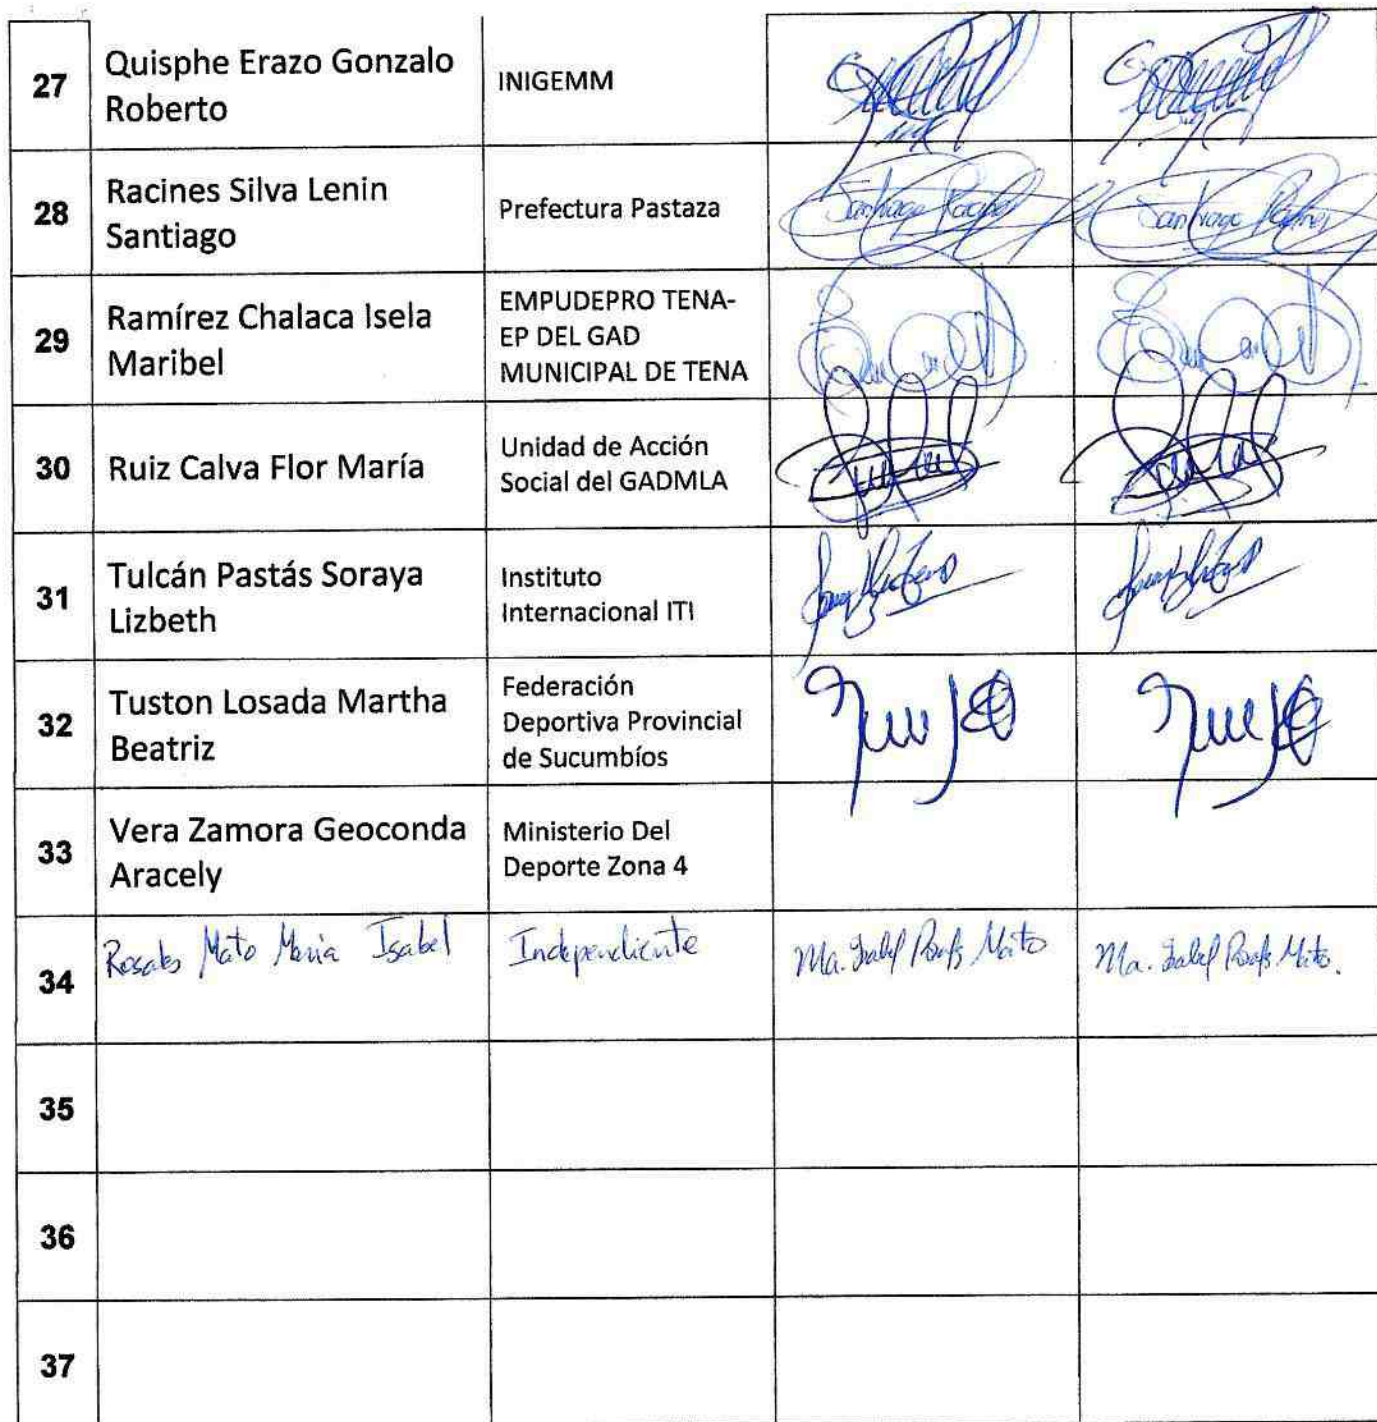 27
Quisphe Erazo Gonzalo
Roberto
INIGEMM
28
Racines Silva Lenin
Santiago
Prefectura Pastaza
Santiago Racines
Santiago Racines
29
Ramírez Chalaca Isela
Maribel
EMPUDEPRO TENA-
EP DEL GAD
MUNICIPAL DE TENA
30
Ruiz Calva Flor María
Unidad de Acción
Social del GADMLA
31
Tulcán Pastás Soraya
Lizbeth
Instituto
Internacional ITI
32
Tuston Losada Martha
Beatriz
Federación
Deportiva Provincial
de Sucumbíos
33
Vera Zamora Geoconda
Aracely
Ministerio Del
Deporte Zona 4
34
Rosales Mato Maria Isabel
Independiente
Ma. Isabel Mato
Ma. Isabel Mato.
35
36
37